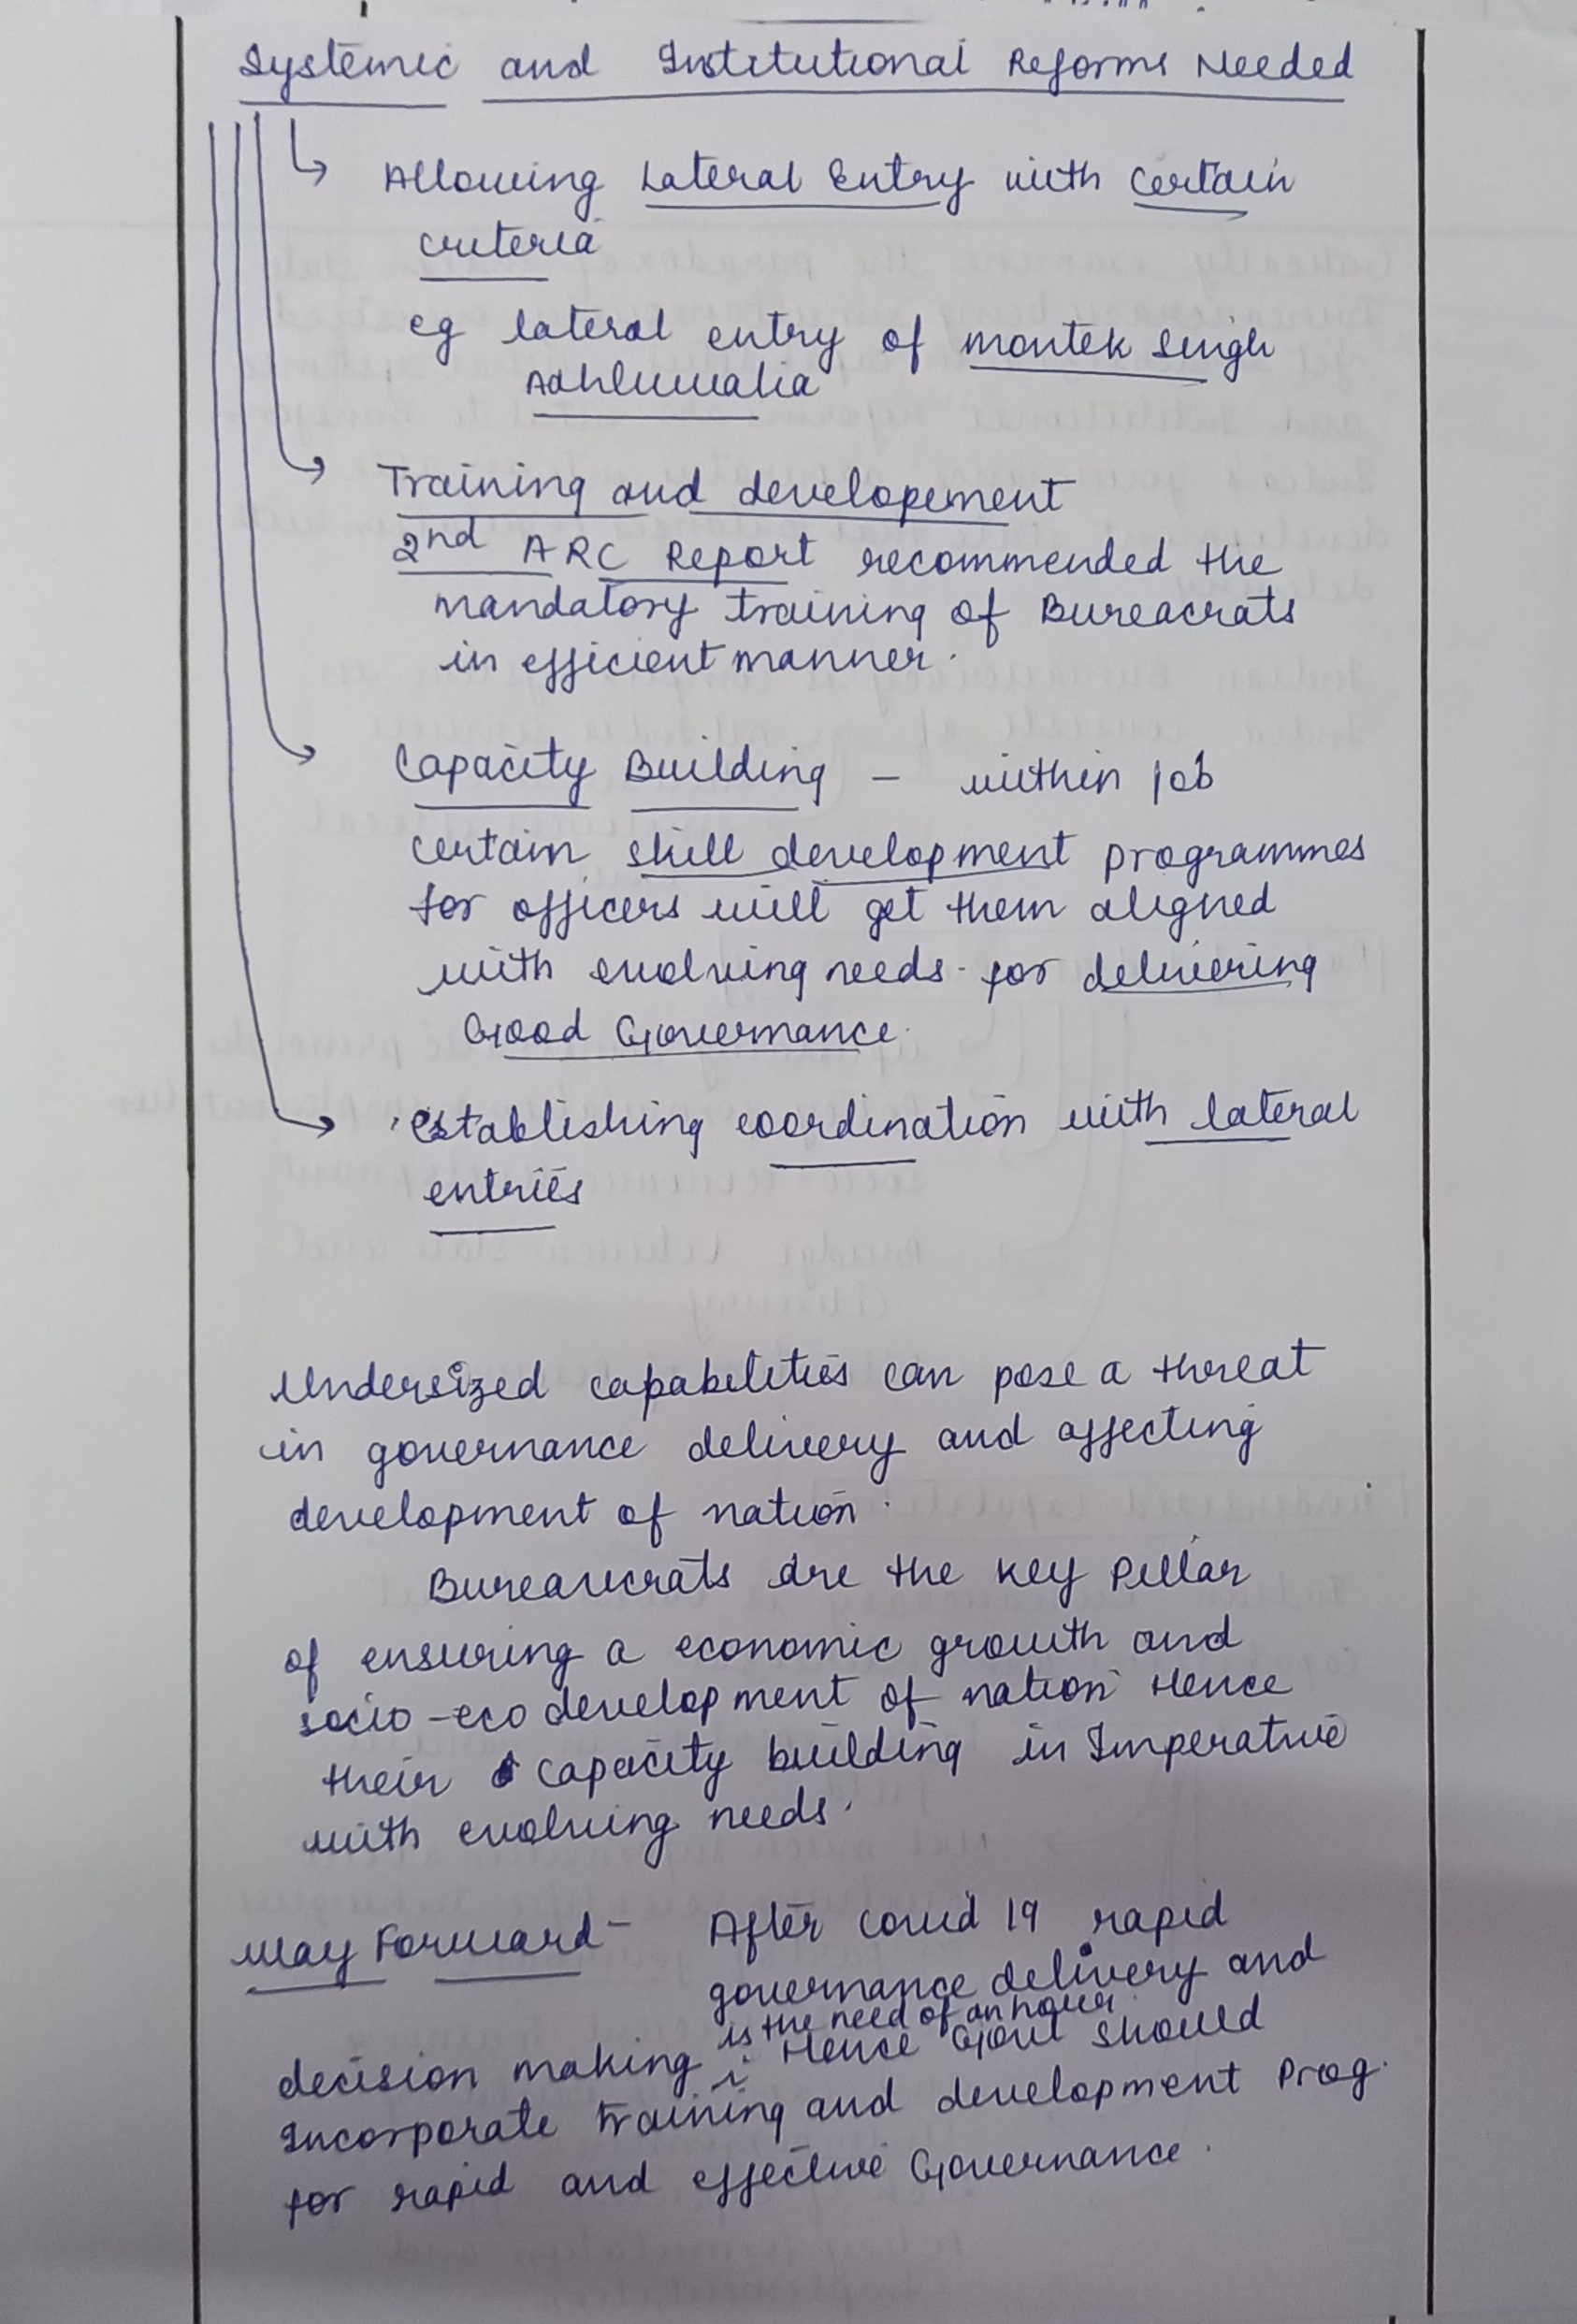 Systemic and Institutional Reforms Needed
Allowing Lateral Entry with certain
criteria
eg lateral entry of Montek Singh
Adhluwalia
Training and developement
2nd ARC Report recommended the
mandatory training of Bureacrats
in efficient manner.
Capacity Building - within job
certain skill development programmes
for officers will get them aligned
with evolving needs for delivering
Good Governance.
establishing coordination with lateral
entries
Undersized capabilities can pose a threat
in governance delivery and affecting
development of nation.
Bureaucrats are the key Pillar
of ensuring a economic growth and
socio-eco development of nation Hence
their capacity building in Imperative
with evolving needs.
Way Forward - After Covid 19 rapid
governance delivery and
is the need of an hour.
decision making Hence Govt should
Incorporate training and development Prog.
for rapid and effective Governance.